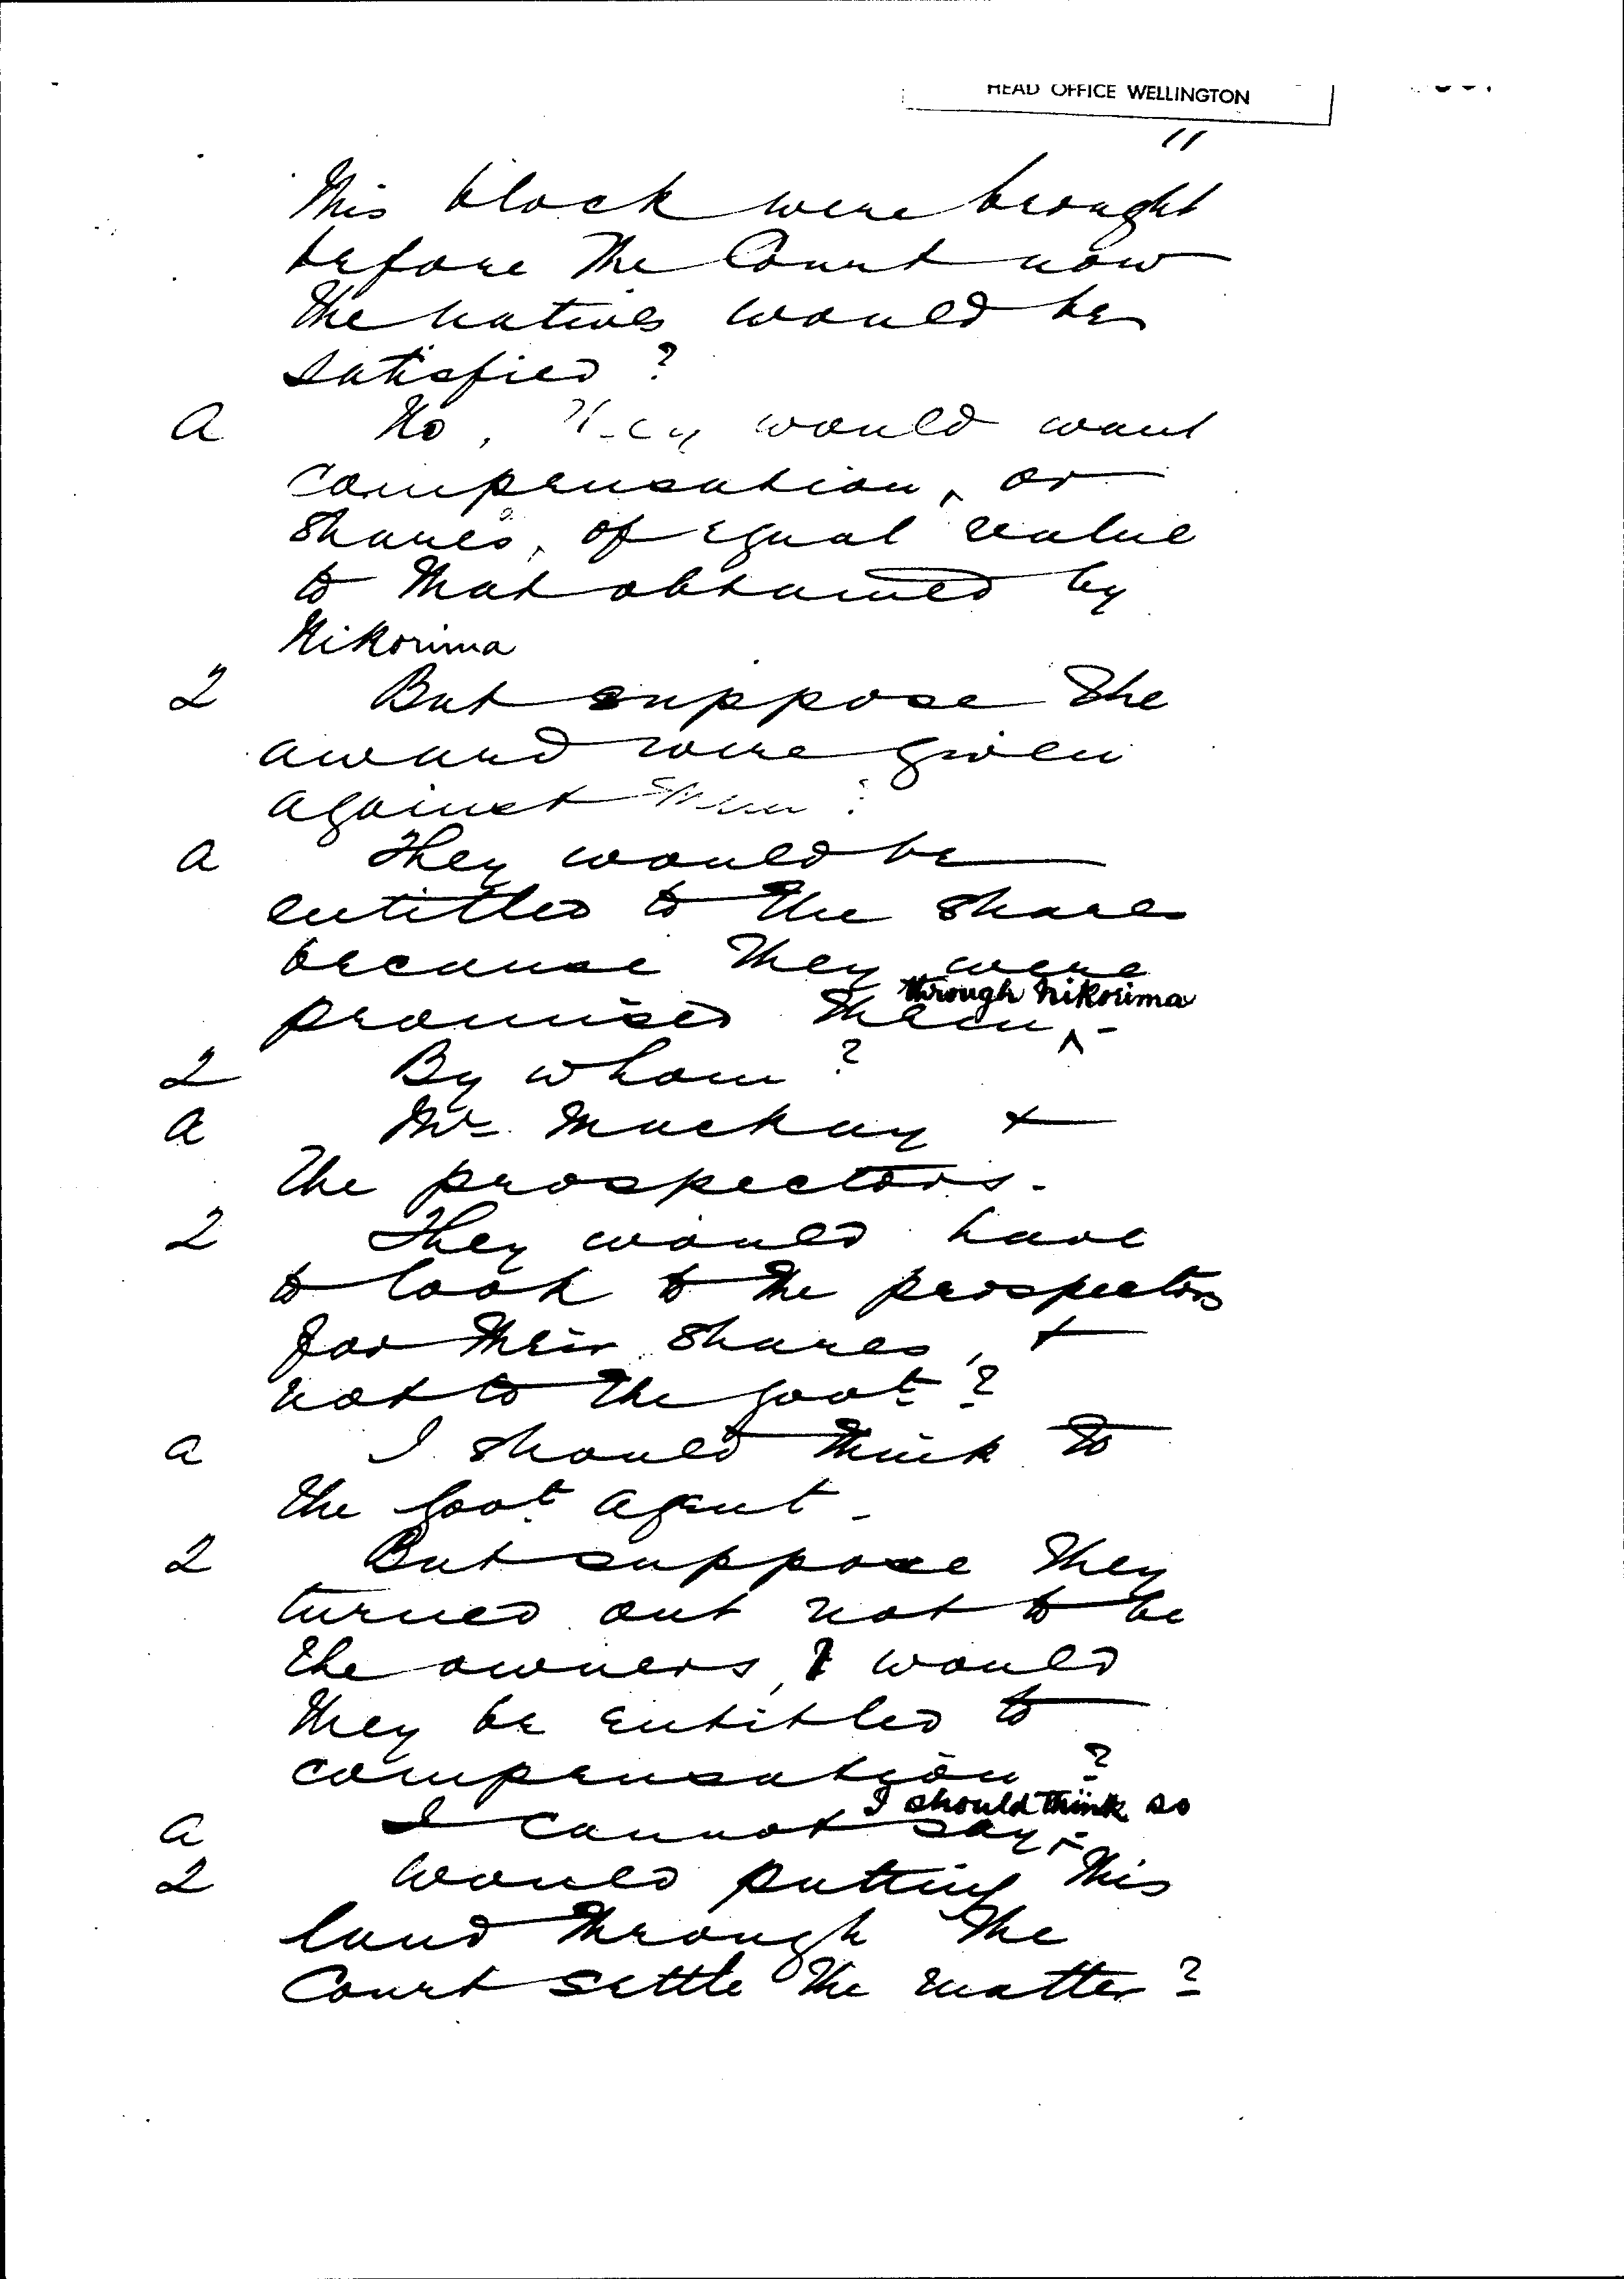 HEAD OFFICE WELLINGTON
11
this block were brought
before the Court now
the natives would be
satisfied?
A No, they would want
compensation, or
shares, of equal value
to that obtained by
Nikorima
Q But suppose the
award were given
against them?
A They would be
entitled to the shares
because they were
through Nikorima
promised them ^ -
Q By whom?
A Mr. Mackay +
the prospectors.
Q They would have
to look to the prospectors
for their shares, +
not to the Govt?
A I should think to
the Govt. Agent -
Q But suppose they
turned out not to be
the owners, would
they be entitled to
compensation?
I should think so
A I cannot say -
Q Would putting this
land through the
Court settle the matter?